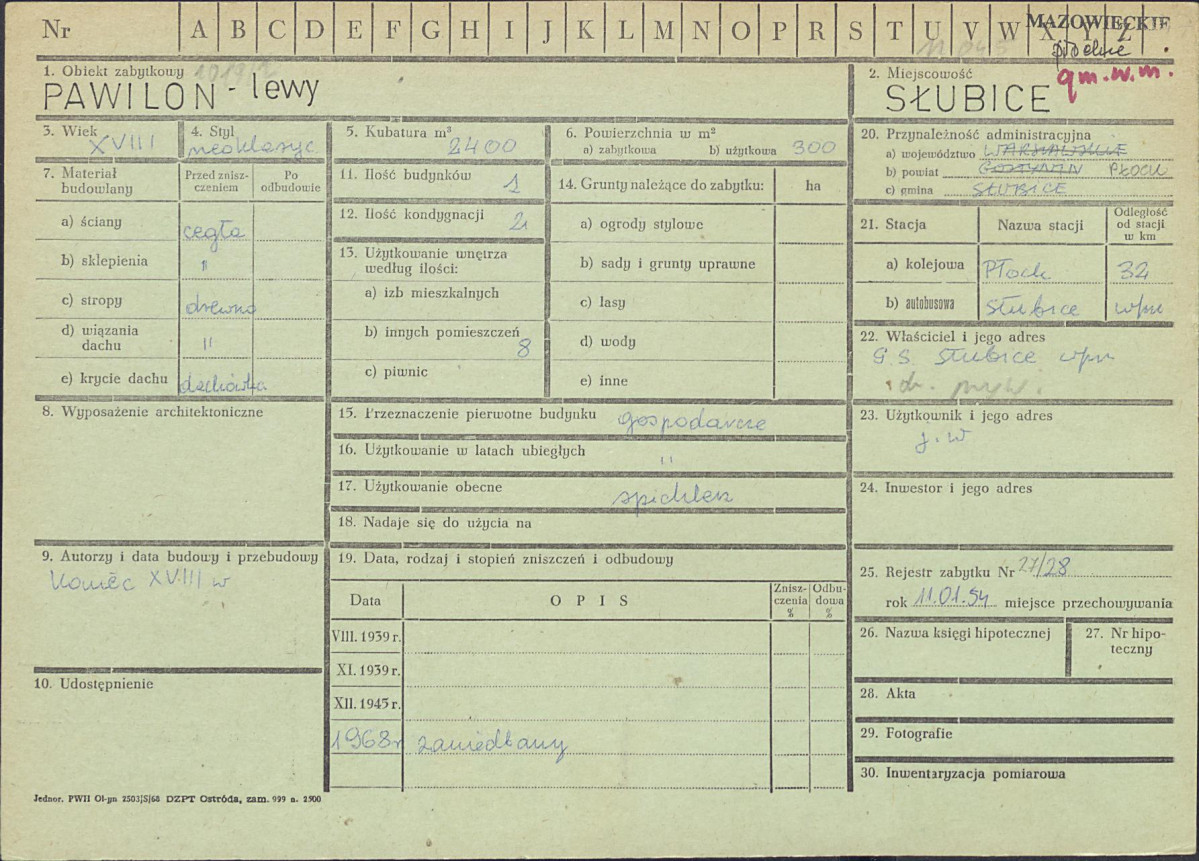 Nr A B C D E F G H I J K L M N O P R S T U V W X Y Z
MAZOWIECKIE
płockie
gm.w.m.
1. Obiekt zabytkowy
PAWILON - lewy
2. Miejscowość
SŁUBICE
3. Wiek
XVIII
4. Styl
neoklasyc
5. Kubatura m³
2400
6. Powierzchnia w m²
a) zabytkowa b) użytkowa 300
7. Materiał budowlany
Przed zniszczeniem
Po odbudowie
a) ściany cegła
b) sklepienia "
c) stropy drewno
d) wiązania dachu "
e) krycie dachu dachówka
8. Wyposażenie architektoniczne
9. Autorzy i data budowy i przebudowy
koniec XVIII w
10. Udostępnienie
11. Ilość budynków 1
12. Ilość kondygnacji 2
13. Użytkowanie wnętrza
według ilości:
a) izb mieszkalnych
b) innych pomieszczeń
8
c) piwnic
14. Grunty należące do zabytku: ha
a) ogrody stylowe
b) sady i grunty uprawne
c) lasy
d) wody
e) inne
15. Przeznaczenie pierwotne budynku gospodarcze
16. Użytkowanie w latach ubiegłych "
17. Użytkowanie obecne spichlerz
18. Nadaje się do użycia na
19. Data, rodzaj i stopień zniszczeń i odbudowy
Data OPIS Zniszczenia % Odbudowa %
VIII. 1939 r.
XI. 1939 r.
XII. 1945 r.
1968r zaniedbany
20. Przynależność administracyjna
a) województwo WARSZAWSKIE
b) powiat GOSTYNIN PŁOCK
c) gmina SŁUBICE
21. Stacja Nazwa stacji Odległość od stacji w km
a) kolejowa Płock 32
b) autobusowa Słubice w/m
22. Właściciel i jego adres
G S Słubice w/m
23. Użytkownik i jego adres
j. w
24. Inwestor i jego adres
25. Rejestr zabytku Nr 27/28
rok 11.01.54 miejsce przechowywania
26. Nazwa księgi hipotecznej
27. Nr hipo-
teczny
28. Akta
29. Fotografie
30. Inwentaryzacja pomiarowa
Jednor. PWH Ol-yn 2503/S/68 DZPT Ostróda, zam. 999 n. 2500